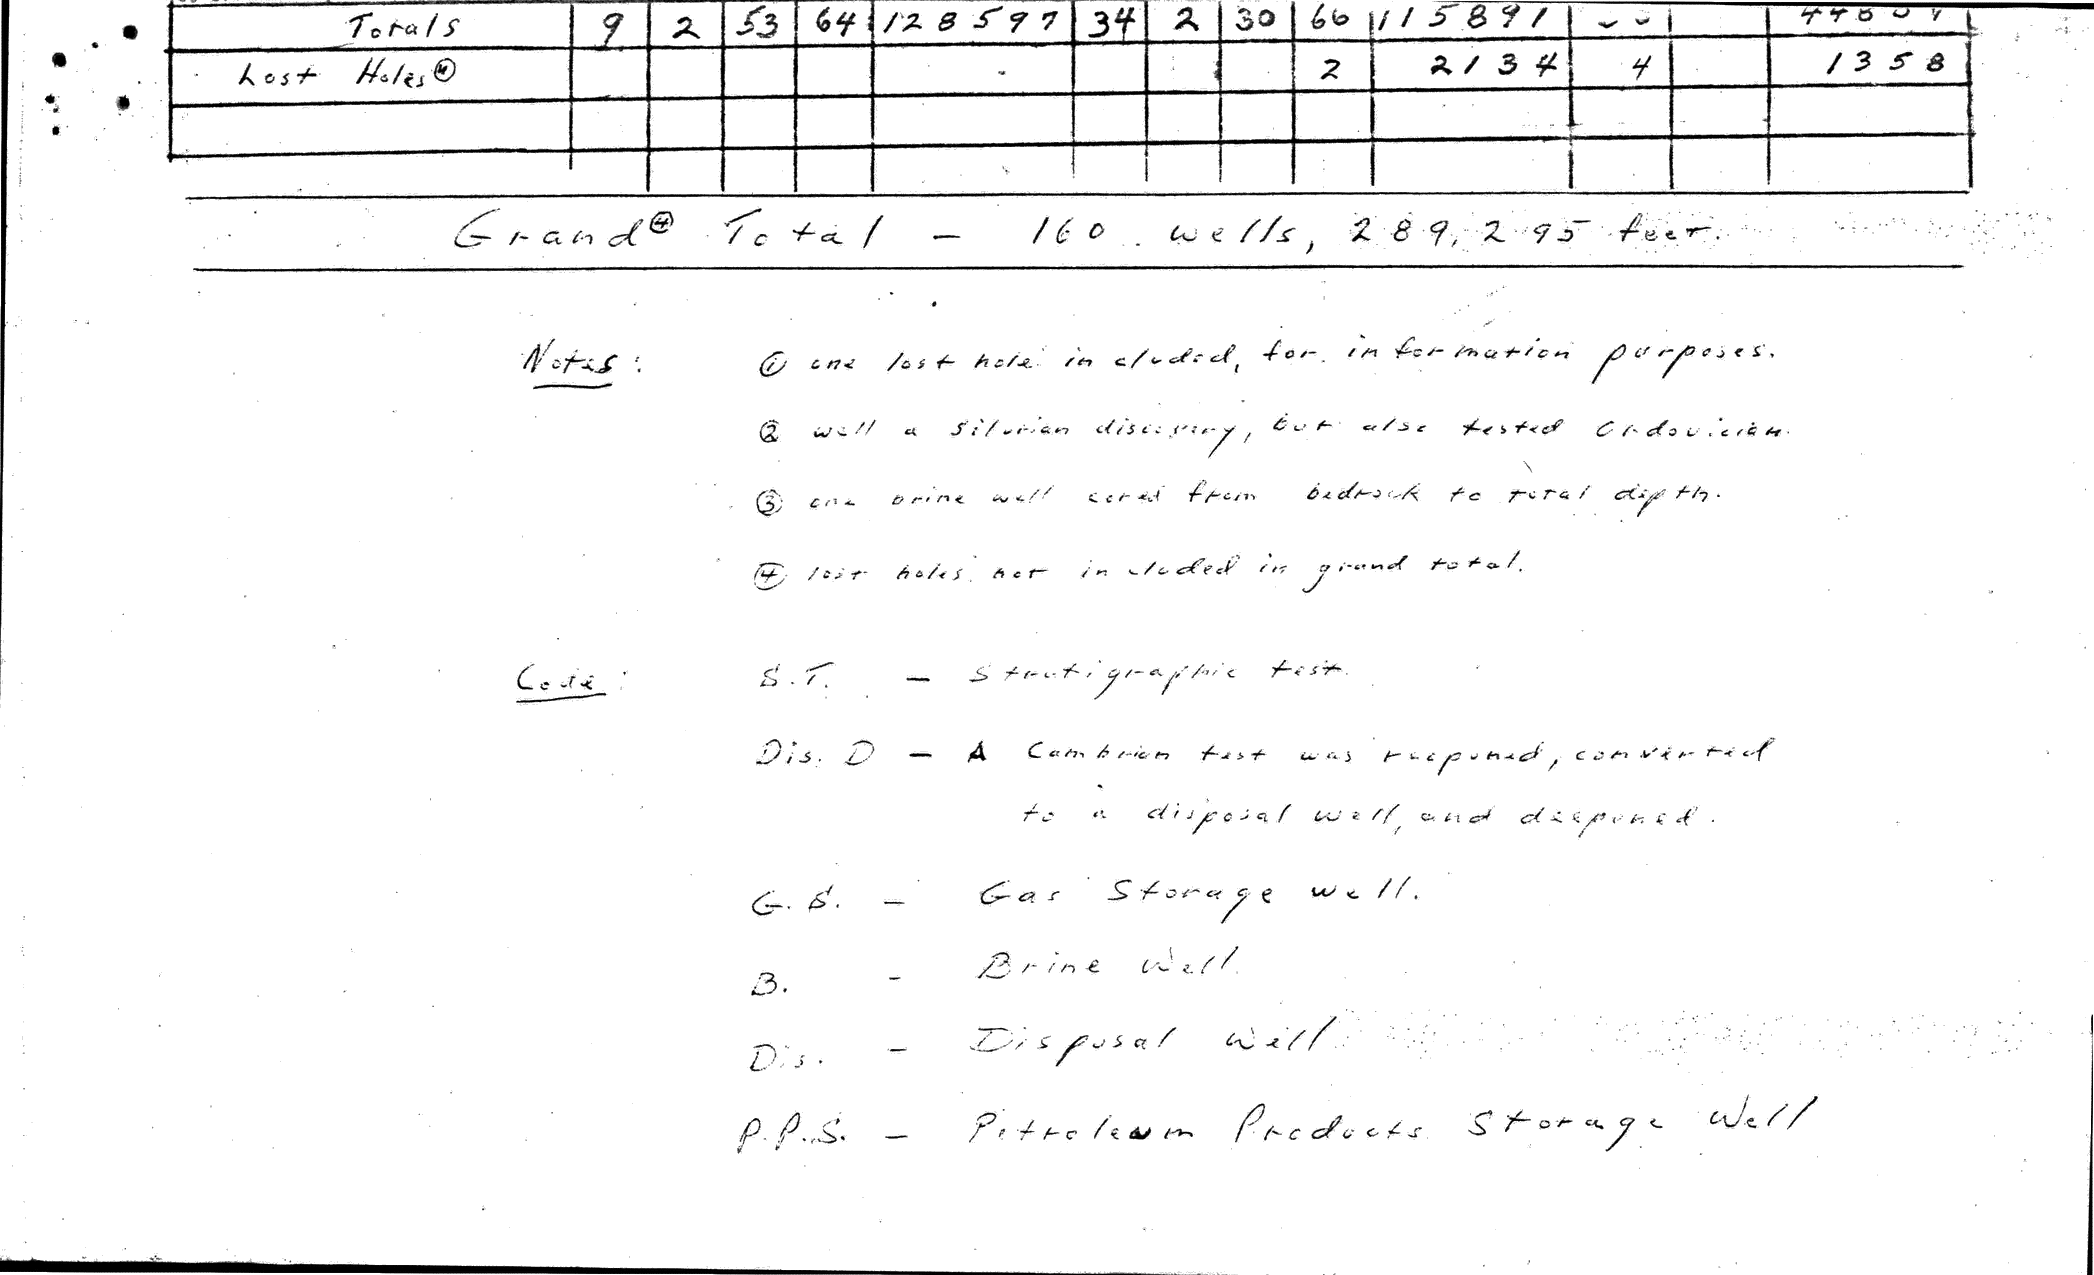 Totals 9 2 53 64 128597 34 2 30 66 115891
Lost Holes④ 2 2134 4 1358
Grand④ Total - 160 wells, 289,295 feet.
Notes: ① one lost hole included, for information purposes.
② well a Silurian discovery, but also tested Ordovician.
③ one brine well cored from bedrock to total depth.
④ lost holes not included in grand total.
Code: S.T. - Stratigraphic test.
Dis. D - A Cambrian test was reopened, converted
to a disposal well, and deepened.
G.S. - Gas Storage well.
B. - Brine Well.
Dis. - Disposal Well
P.P.S. - Petroleum Products Storage Well